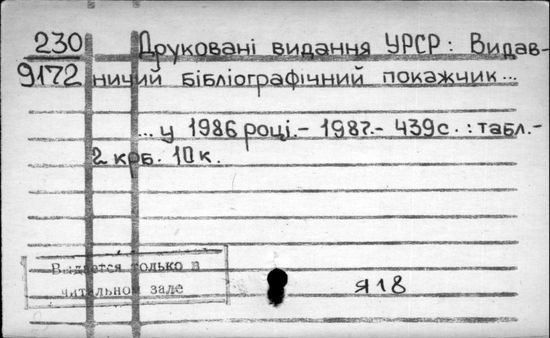 230 Друковані видання УРСР: Видав-
9172 ничий бібліографічний покажчик...
... у 1986 році.- 1987.- 439с. : табл.-
2 крб. 10 к.
Выдается только в
читальном зале
Я18